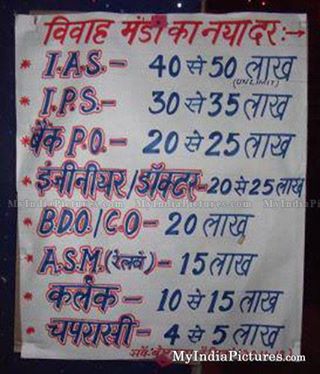 विवाह मंडी का नया दर :→
* I.A.S. – 40 से 50 लाख
(UNLIMIT)
* I.P.S. – 30 से 35 लाख
* बैंक P.O. – 20 से 25 लाख
* इंनीनीयर/डॉक्टर – 20 से 25 लाख
MyIndiaPictures.com
* B.D.O./C.O – 20 लाख
* A.S.M. (रेलवे) – 15 लाख
* कर्लक – 10 से 15 लाख
* चपरासी – 4 से 5 लाख
MyIndiaPictures.com